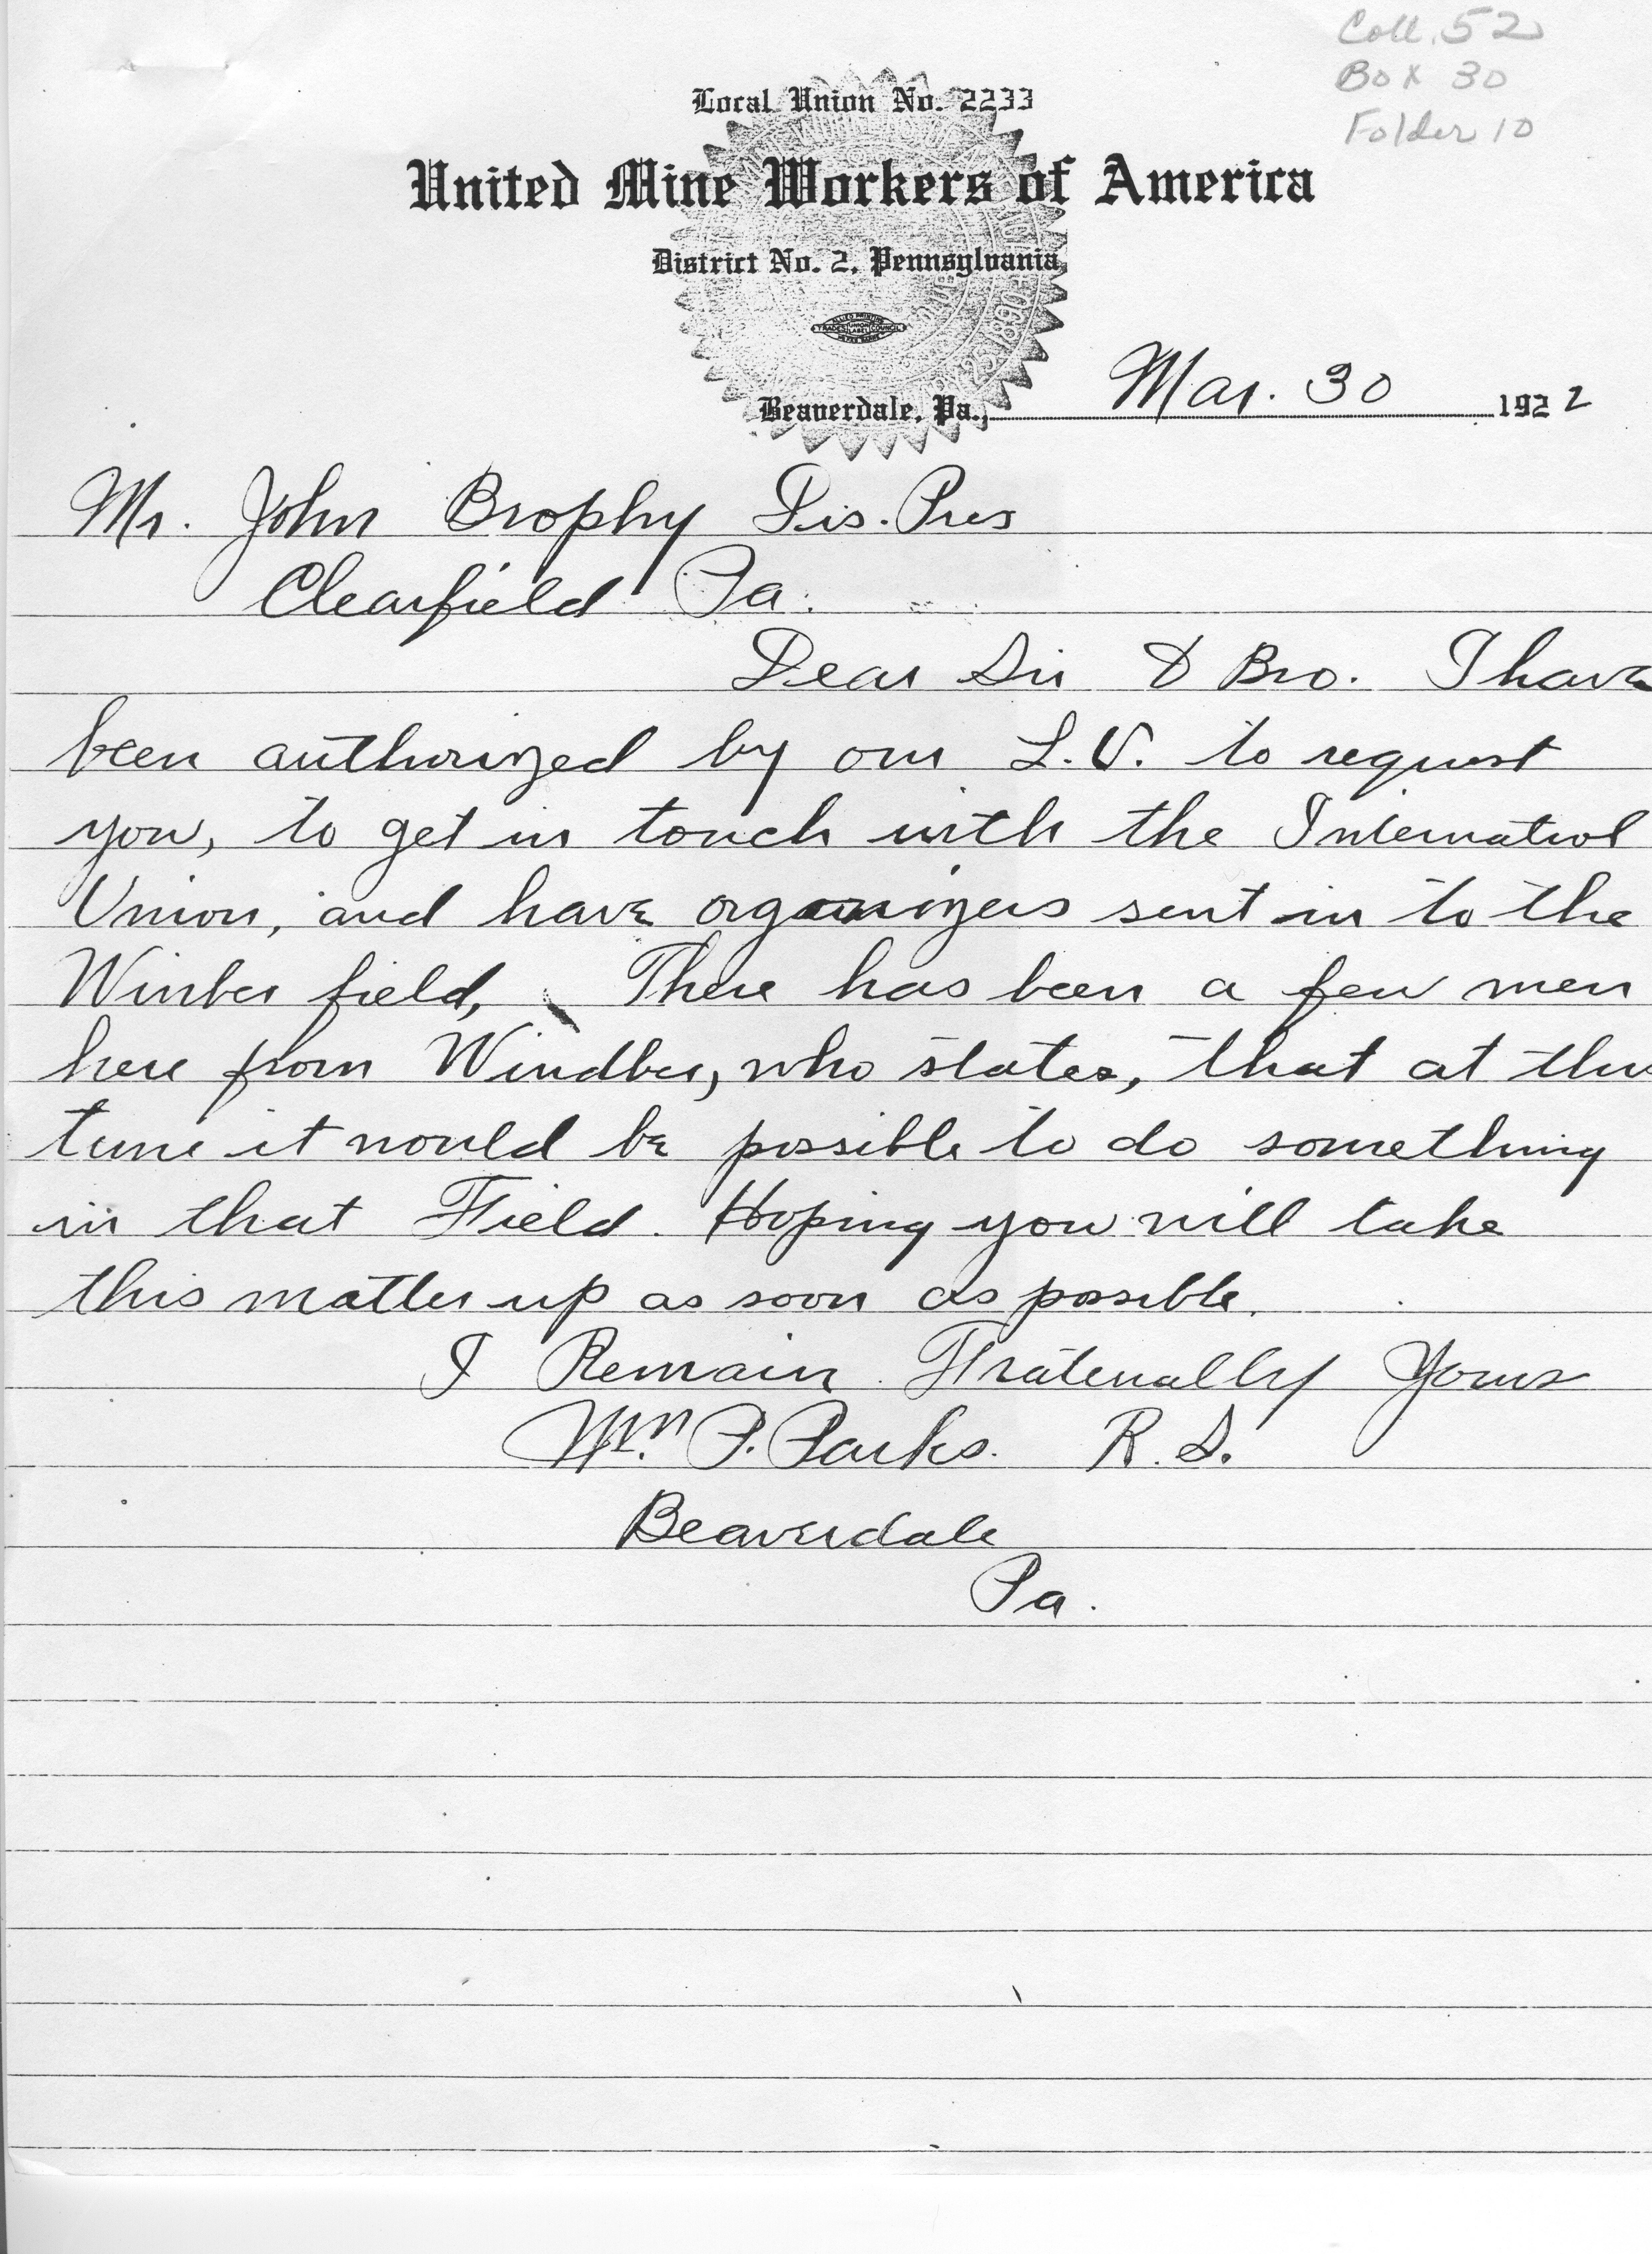 Coll. 52
Box 30
Folder 10
Local Union No. 2233
United Mine Workers of America
District No. 2, Pennsylvania
ALLIED PRINTING
TRADES UNION LABEL COUNCIL
Beaverdale, Pa., Mar. 30 1922
Mr. John Brophy Dis. Pres
Clearfield Pa.
Dear Sir & Bro. I have
been authorized by our L.U. to request
you, to get in touch with the Internatiol
Union, and have organizers sent in to the
Winber field, There has been a few men
here from Windber, who states, that at this
time it would be possible to do something
in that Field. Hoping you will take
this matter up as soon as possible.
I Remain Fraternally Yours
Wm. P. Parks. R.S.
Beaverdale
Pa.